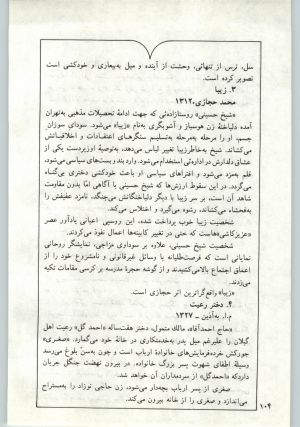 سل، ترس از تنهائی، وحشت از آینده و میل به‌بیماری و خودکشی است
تصویر کرده است.
۳. زیبا
محمد حجازی-۱۳۱۲
«شیخ حسینی» روستازاده‌ئی که جهت ادامهٔ تحصیلات مذهبی به‌تهران
آمده دلباختهٔ زن هوسباز و آشوبگری به‌نام «زیبا» می‌شود. سودای سوزان
جسم او را مرحله به‌مرحله به‌تسلیم سنگرهای اعتقادات و اخلاقیاتش
می‌کشاند. شیخ به‌خاطر زیبا تغییر لباس می‌دهد، به‌توصیهٔ اوزیردست یکی از
عشاق دلدارش در اداره‌ئی استخدام می‌شود. وارد بند و بست‌های سیاسی می‌شود،
قلم به‌مزد می‌شود و افتراهای سیاسی او باعث خودکشی دختری بی‌گناه
می‌گردد. در این سقوط ارزش‌ها که شیخ حسینی با آگاهی امّا بدون مقاومت
شاهد آن است، بر سر زیبا با دیگر دلباختگانش می‌جنگد، نامزد عفیفش را
به‌فحشاء می‌کشاند، رشوه می‌گیرد و اختلاس می‌کند.
شخصیت زیبا خوب پرداخت شده، این روسپی اعیانی یادآور عصر
«عزیزکاشی»هاست که حتی در تغییر کابینه‌ها اعمال نفوذ می‌کردند.
شخصیت شیخ حسینی، علاوه بر سوداوی مزاجی، نمایشگر روحانی
نمایانی است که فرصت‌طلبانه با وسائل غیرقانونی و نامشروع خود را از
اعماق اجتماع بالا می‌کشیدند و از گوشه حجرهٔ مدرسه بر کرسی مقامات تکیه
می‌زدند.
«زیبا» واقع‌گراترین اثر حجازی است.
۴. دختر رعیت
م.ا. به‌آذین – ۱۳۲۷
«حاج احمدآقا»، مالک متمول، دختر هفت‌ساله «احمد گل» رعیت اهل
گیلان را علیرغم میل پدر به‌خدمتکاری در خانهٔ خود می‌گمارد. «صغری»
جورکش خرده‌فرمایش‌های خانوادهٔ ارباب است و چون به‌سنّ بلوغ می‌رسد
وسیلهٔ اطفای شهوت پسر بزرگ خانواده. در بیرون نهضت جنگل جریان
دارد که «احمدگل» از سردمداران آن خواهد شد.
صغری از پسر ارباب بچه‌دار می‌شود، زن حاجی نوزاد را به‌مستراح
می‌اندازد و صغری را از خانه بیرون می‌کند.
۱۰۴